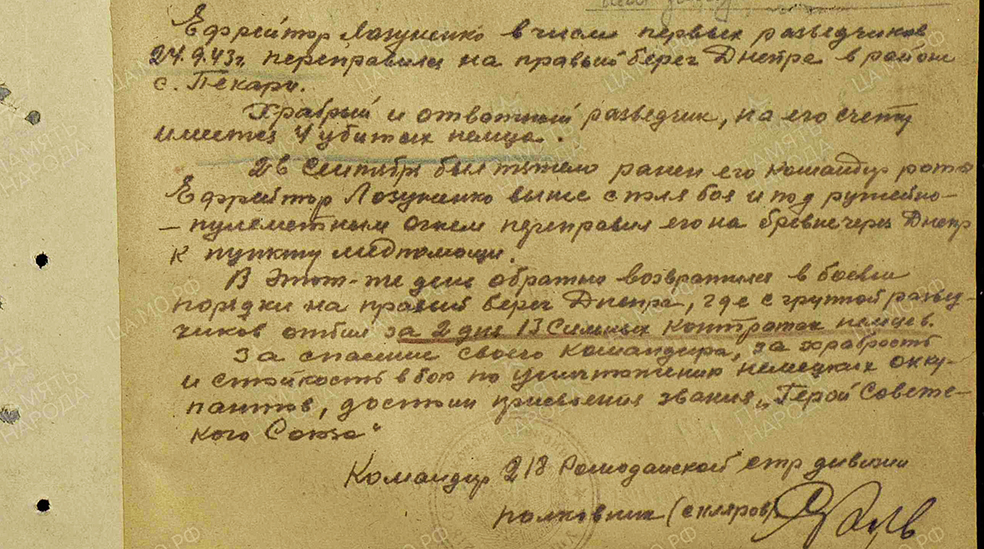 Ефрейтор Лазуненко в числе первых разведчиков
24.9.43г. переправился на правый берег Днепра в районе
с. Пекари.
Храбрый и отважный разведчик, на его счету
имеется 4 убитых немца.
26 Сентября был тяжело ранен его командир роты
Ефрейтор Лозуненко вынес с поля боя и под ружейно-
-пулеметным огнем переправил его на бревне через Днепр
к пункту медпомощи.
В этот-же день обратно возвратился в боевые
порядки на правый берег Днепра, где с группой развед-
чиков отбил за 2 дня 13 Сильных контратак немцев.
За спасение своего командира, за храбрость
и стойкость в бою по уничтожению немецких окку-
пантов, достоин присвоения звания „Герой Советс-
кого Союза"
Командир 218 Ромодамской стр дивизии
полковник (Скляров)
ПАМЯТЬ
НАРОДА
ЦАМО.РФ